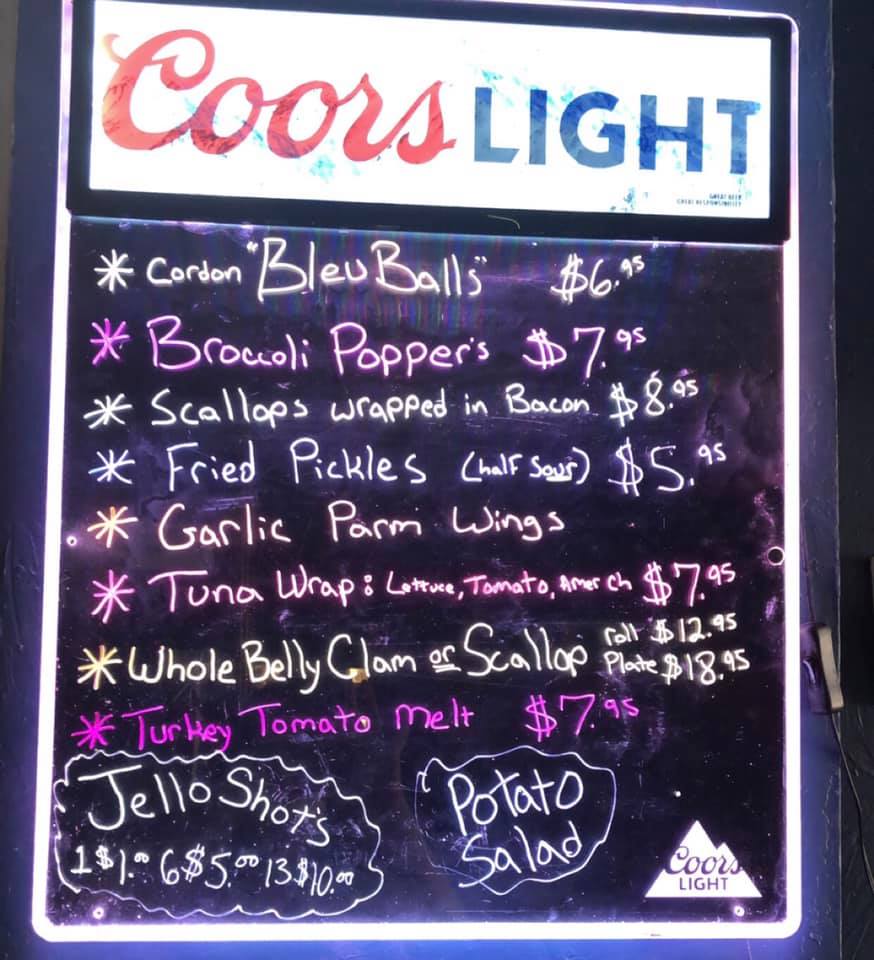 Coors LIGHT
GREAT BEER
GREAT RESPONSIBILITY
* Cordon "Bleu Balls" $6.95
* Broccoli Popper's $7.95
* Scallops wrapped in Bacon $8.95
* Fried Pickles (half sour) $5.95
* Garlic Parm Wings
* Tuna Wrap: Lettuce, Tomato, Amer Ch $7.95
* Whole Belly Clam or Scallop roll $12.95
Plate $18.95
* Turkey Tomato Melt $7.95
Jello Shot's
1 $1.00 6 $5.00 13 $10.00
Potato
Salad
Coors
LIGHT